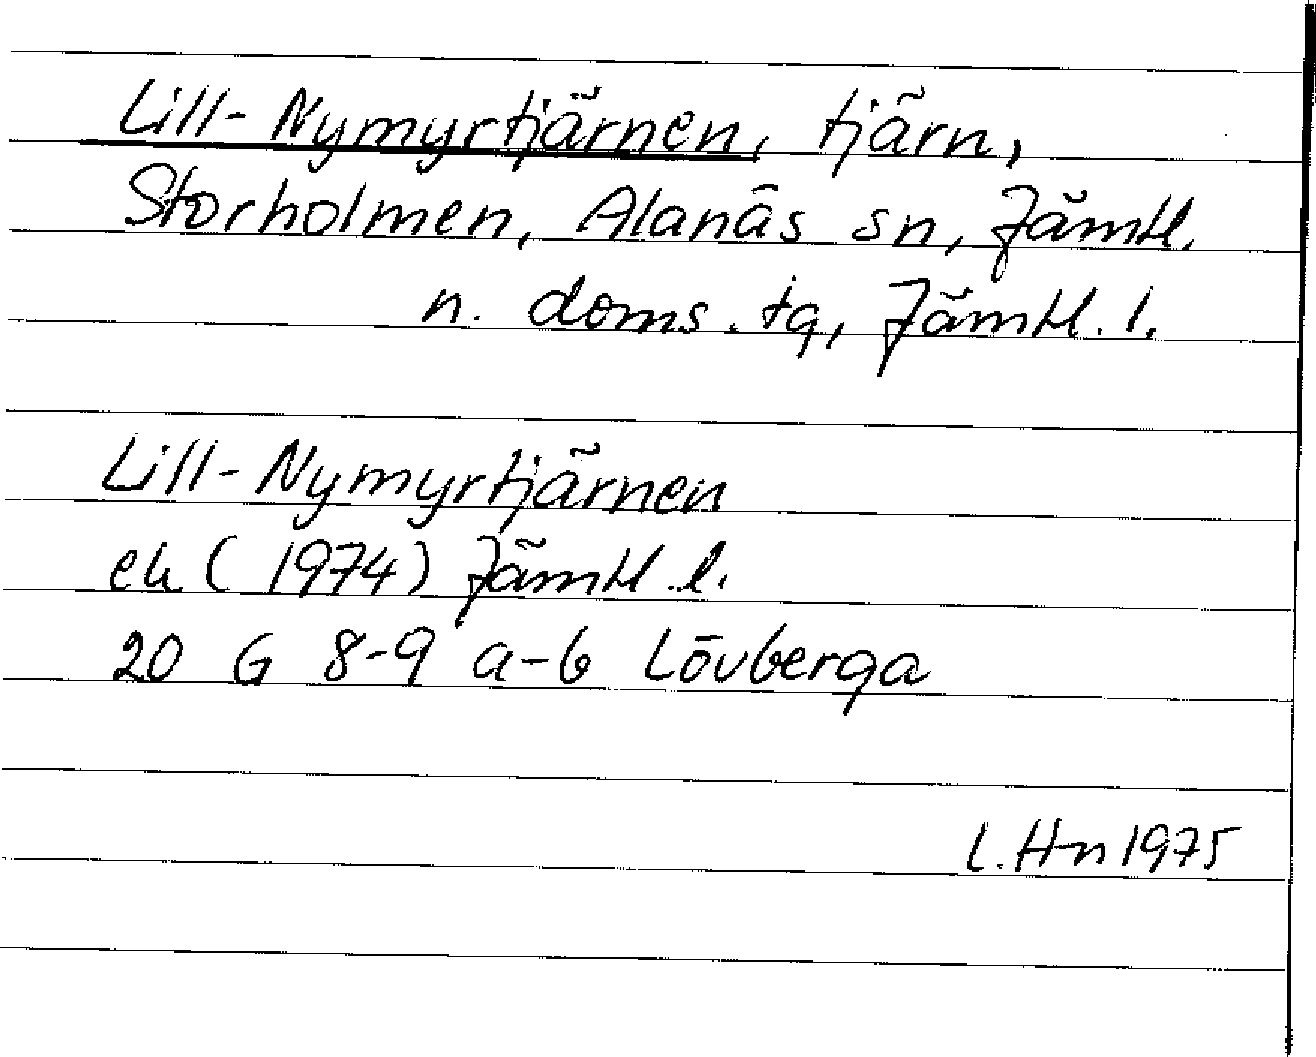 Lill-Nymyrtjärnen, tjärn,
Storholmen, Alanäs sn, Jämtl.
n. doms. tg, Jämtl. l.
Lill-Nymyrtjärnen
ek (1974) Jämtl. l.
20 G 8-9 a-b Lövberga
L. Hn 1975